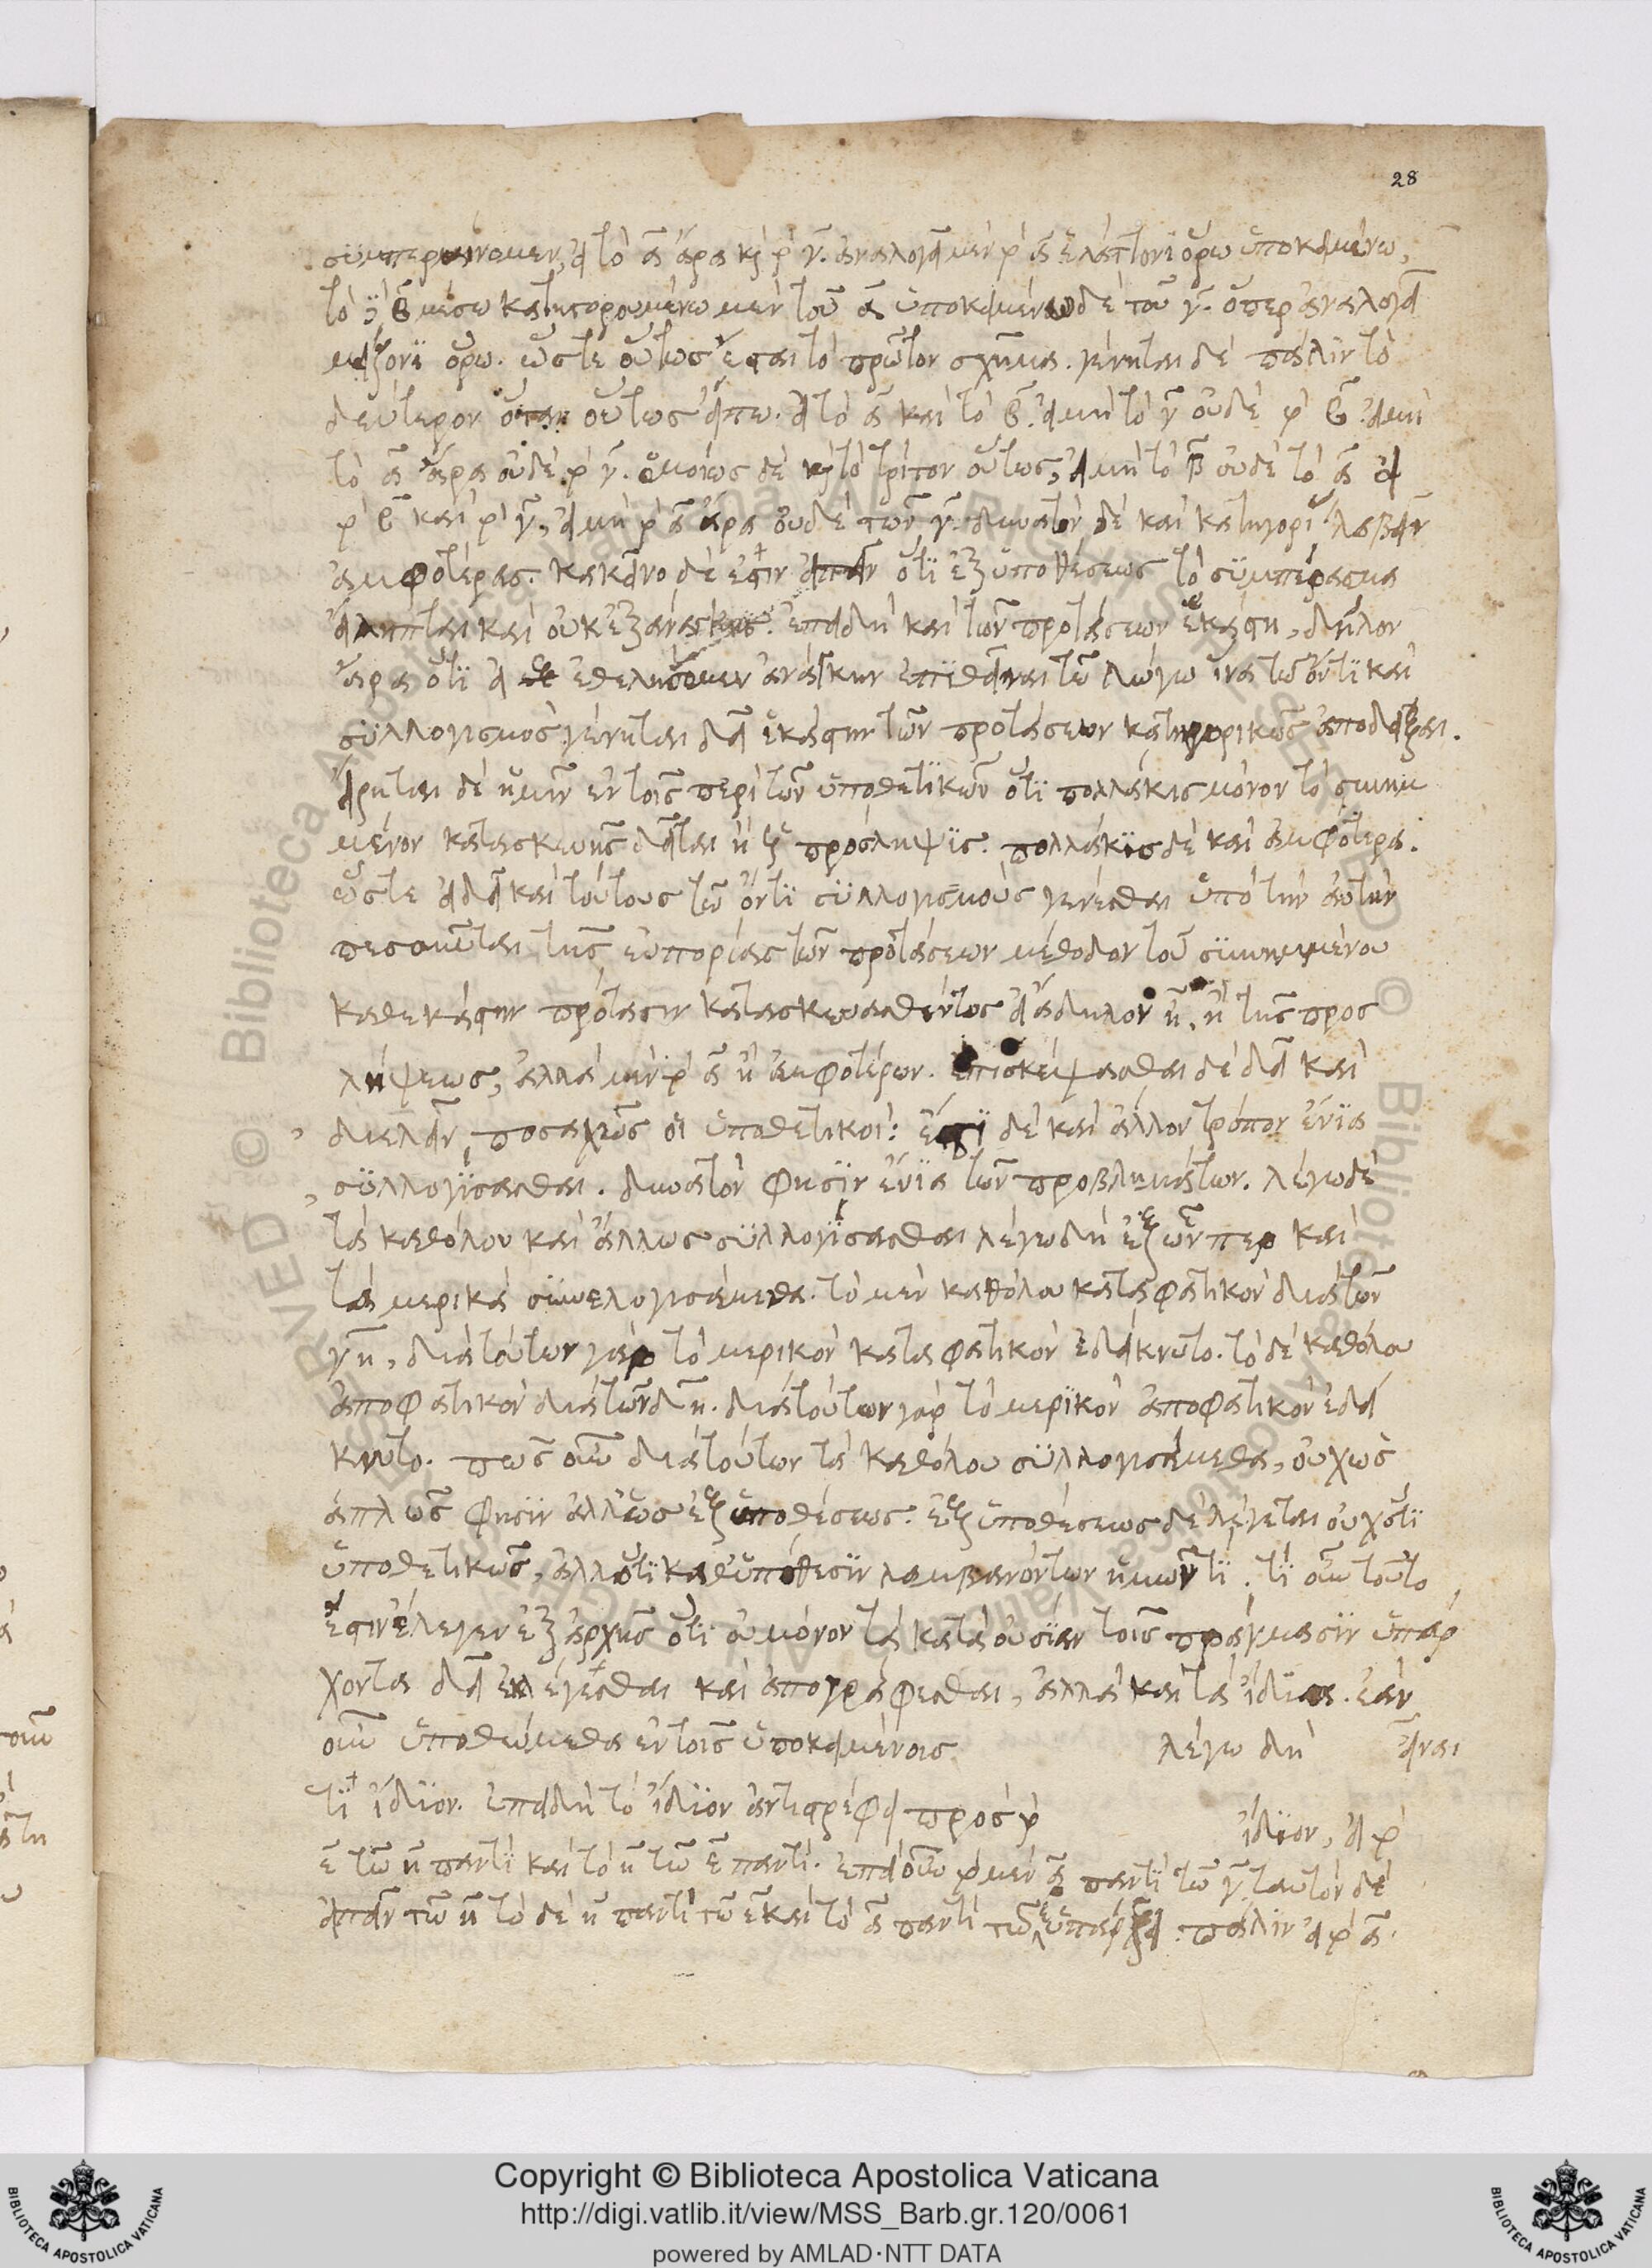 28
συμπεραίνομεν, εἰ τὸ α ἄρα καὶ τὸ γ. ἀναλογεῖ μὲν τὸ α ἐλάττονι ὅρω ὑποκειμένω,
τὸ β μέσω κατηγορουμένω μὲν τοῦ α ὑποκειμένω δὲ τοῦ γ. ὅπερ ἀναλογεῖ
μείζονι ὅρω. ὥστε οὕτως ἔσται τὸ πρῶτον σχῆμα. γίνηται δὲ πάλιν τὸ
δεύτερον ὅταν οὕτως εἴπω. εἰ τὸ α καὶ τὸ β. εἰ μὴ τὸ γ οὐδὲ τὸ β. εἰ μὴ
τὸ α ἄρα οὐδὲ τὸ γ. ὁμοίως δὲ καὶ τὸ τρίτον οὕτως, εἰ μὴ τὸ β οὐδὲ τὸ α εἰ
τὸ β καὶ τὸ γ, εἰ μὴ τὸ α ἄρα οὐδὲ τῶν γ. δυνατὸν δὲ καὶ κατηγορι λαβεῖν
ἀμφοτέρας. κἀκεῖνο δέ ἐστιν εἰπεῖν ὅτι ἐξ ὑποθέσεως τὸ συμπέρασμα
εἴληπται καὶ οὐκ ἐξ ἀνάγκης. ἐπειδὴ καὶ τῶν προτάσεων ἑκάστη, δῆλον
ἄρα ὅτι εἰ ἐθελήσομεν ἀνάγκην ἐπιθεῖναι τῶ λόγω ἵνα τῶ ὄντι καὶ
συλλογισμὸς γένηται δεῖ ἑκάστην τῶν προτάσεων κατηγορικῶς ἀποδεῖξαι.
εἴρηται δὲ ἡμῖν ἐν τοῖς περὶ τῶν ὑποθετικῶν ὅτι πολλάκις μόνον τὸ συνημ
μένον κατασκευῆς δεῖται ἢ ἡ πρόσληψις. πολλάκις δὲ καὶ ἀμφότερα.
ὥστε εἰ δεῖ καὶ τούτους τῶ ὄντι συλλογισμοὺς γενέσθαι ὑπὸ τὴν αὐτὴν
πεσοῦνται τῆς εὐπορίας τῶν προτάσεων μέθοδον τοῦ συνημμένου
καθεκάστην πρότασιν κατασκευασθέντος εἰ ἄδηλον ἦ, ἢ τῆς προς
λήψεως, ἀλλὰ μὴν τὸ α ἢ ἀμφοτέρων. ἐπισκέψασθαι δὲ δεῖ καὶ
διελεῖν ποσαχῶς οἱ ὑποθετικοί: ἔστι δὲ καὶ ἄλλον τρόπον ἔνια
συλλογίσασθαι. δυνατόν φησιν ἔνια τῶν προβλημάτων. λέγω δὲ
τὰ καθόλου καὶ ἄλλως συλλογίσασθαι λέγω δὴ ἐξ ὧνπερ καὶ
τὰ μερικὰ συνελογισάμεθα. τὸ μὲν καθόλου καταφατικὸν διὰ τῶν
γη, διὰ τούτων γὰρ τὸ μερικὸν καταφατικὸν ἐδείκνυτο. τὸ δὲ καθόλου
ἀποφατικὸν διὰ τῶν δη. διὰ τούτων γὰρ τὸ μερικὸν ἀποφατικὸν ἐδεί
κνυτο. πῶς οὖν διὰ τούτων τὰ καθόλου συλλογισάμεθα, οὐχ ὡς
ἁπλῶς φησιν ἀλλ' ὡς ἐξ ὑποθέσεως. ἐξ ὑποθέσεως δὲ λέγεται οὐχ ὅτι
ὑποθετικῶς, ἀλλ' ὅτι καθ' ὑπόθεσιν λαμβανόντων ἡμῶν τι. τί οὖν τοῦτο
ἐστιν ἔλεγεν ἐξ ἀρχῆς ὅτι οὐ μόνον τὰ κατὰ οὐσίαν τοῖς πράγμασιν ὑπάρ
χοντα δεῖ ἐκλέγεσθαι καὶ ἀπογράφεσθαι, ἀλλὰ καὶ τὰ ἴδια. ἐὰν
οὖν ὑποθώμεθα ἐν τοῖς ὑποκειμένοις λέγω δὴ εἶναι
τι ἴδιον. ἐπειδὴ τὸ ἴδιον ἀντιστρέφει πρὸς τὸ ἴδιον, εἰ τὸ
ε τῶ η παντὶ καὶ τὸ η τῶ ε παντί. ἐπεὶ οὖν τὸ μὲν α παντὶ τῶ γ ταυτὸν δὲ
εἰπεῖν τῶ η τὸ δὲ η παντὶ τῶ ε καὶ τὸ α παντὶ τῶ ε ὑπάρχει. πάλιν εἰ τὸ α.
Copyright © Biblioteca Apostolica Vaticana
http://digi.vatlib.it/view/MSS_Barb.gr.120/0061
powered by AMLAD·NTT DATA